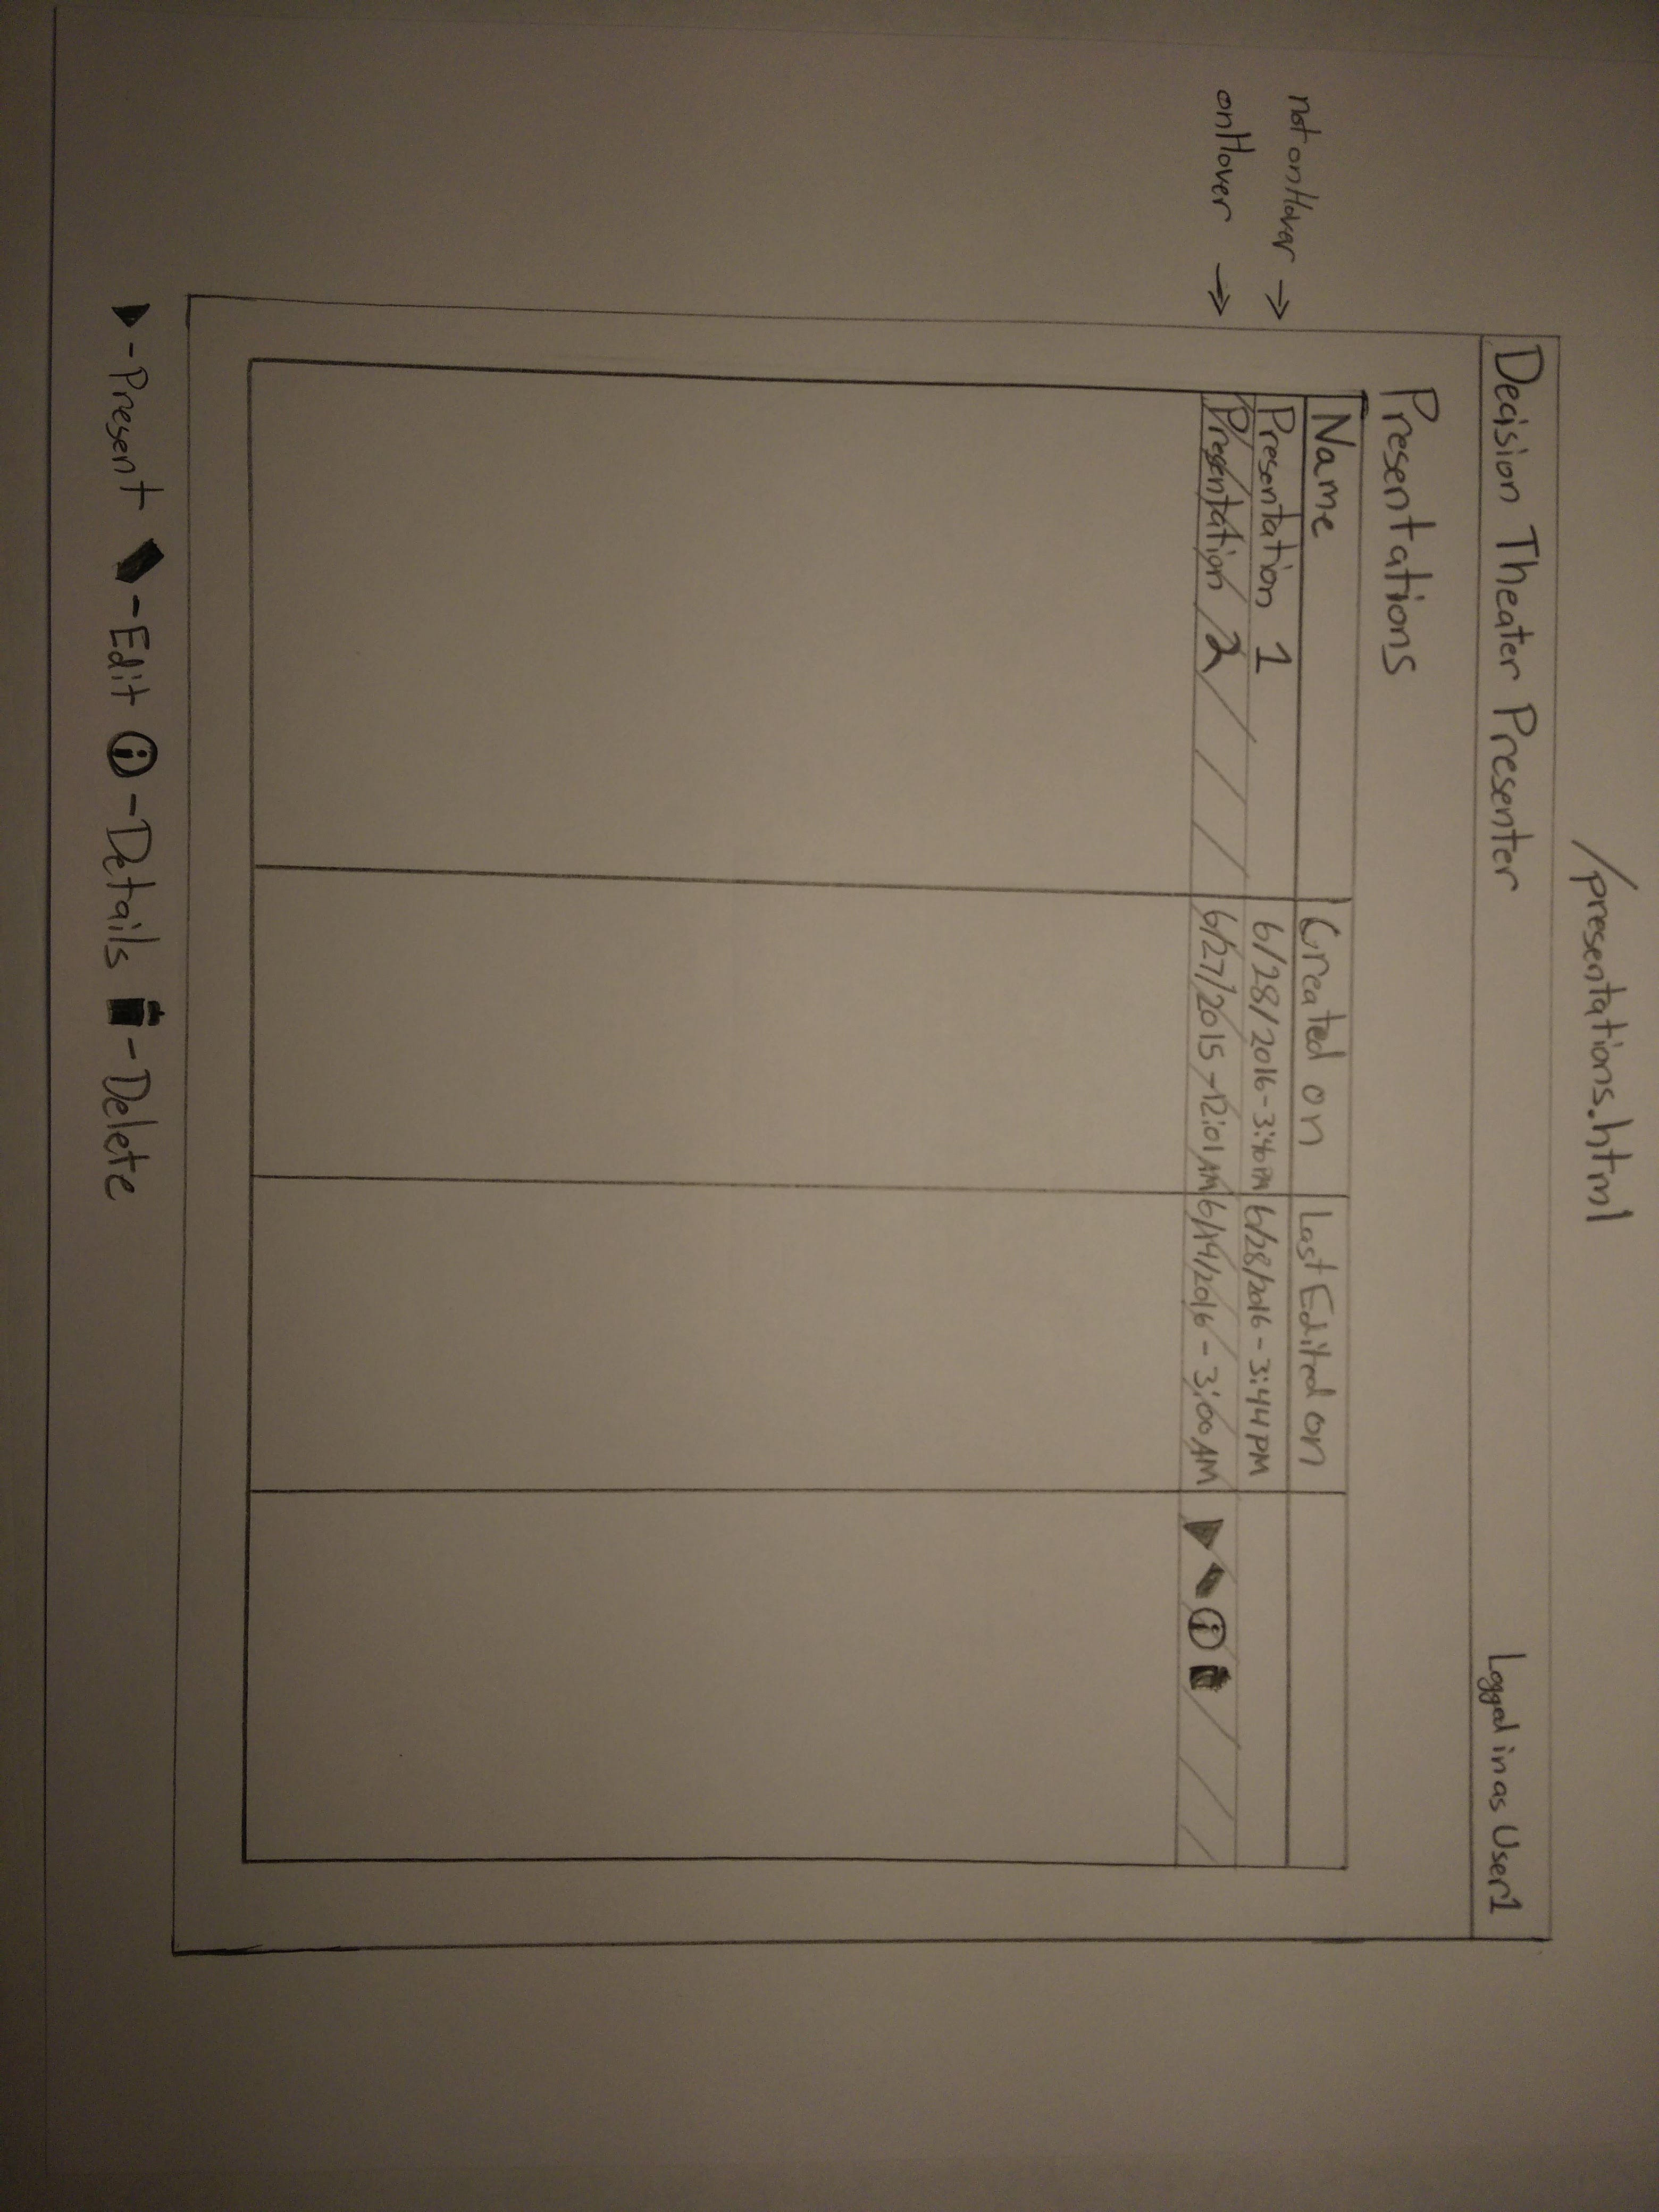 /presentations.html
Decision Theater Presenter Logged in as User1
Presentations
Name Created on Last Edited on
not onHover → Presentation 1 6/28/2016-3:40PM 6/28/2016-3:44PM
onHover → Presentation 2 6/27/2015-12:01AM 6/19/2016-3:00AM
-Present -Edit i-Details -Delete